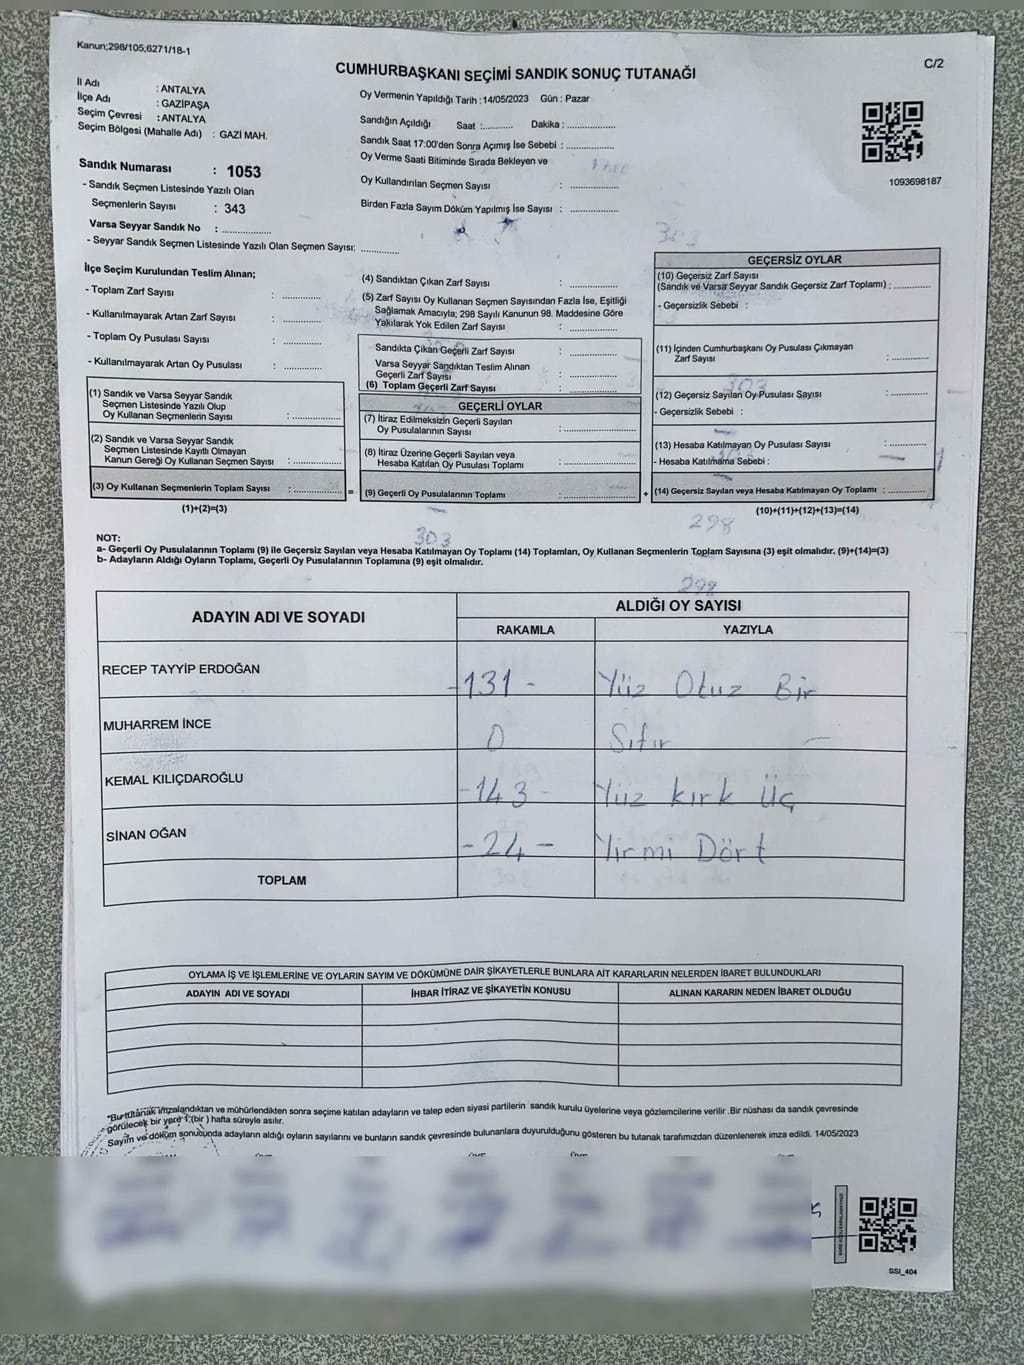 Kanun;298/105;6271/18-1
C/2
CUMHURBAŞKANI SEÇİMİ SANDIK SONUÇ TUTANAĞI
İl Adı : ANTALYA
İlçe Adı : GAZİPAŞA
Seçim Çevresi : ANTALYA
Seçim Bölgesi (Mahalle Adı) : GAZİ MAH.
Sandık Numarası : 1053
- Sandık Seçmen Listesinde Yazılı Olan
Seçmenlerin Sayısı : 343
Varsa Seyyar Sandık No : ..............
- Seyyar Sandık Seçmen Listesinde Yazılı Olan Seçmen Sayısı: ............
Oy Vermenin Yapıldığı Tarih : 14/05/2023 Gün : Pazar
Sandığın Açıldığı Saat :.......... Dakika : ................
Sandık Saat 17:00'den Sonra Açımış İse Sebebi : ................
Oy Verme Saati Bitiminde Sırada Bekleyen ve
Oy Kullandırılan Seçmen Sayısı : ................
Birden Fazla Sayım Döküm Yapılmış İse Sayısı : ................
1093698187
303
İlçe Seçim Kurulundan Teslim Alınan;
- Toplam Zarf Sayısı : ............
- Kullanılmayarak Artan Zarf Sayısı : ............
- Toplam Oy Pusulası Sayısı : ............
- Kullanılmayarak Artan Oy Pusulası : ............
(1) Sandık ve Varsa Seyyar Sandık
Seçmen Listesinde Yazılı Olup
Oy Kullanan Seçmenlerin Sayısı : ................
(2) Sandık ve Varsa Seyyar Sandık
Seçmen Listesinde Kayıtlı Olmayan
Kanun Gereği Oy Kullanan Seçmen Sayısı : ................
(3) Oy Kullanan Seçmenlerin Toplam Sayısı : ................ =
(1)+(2)=(3)
(4) Sandıktan Çıkan Zarf Sayısı : ................
(5) Zarf Sayısı Oy Kullanan Seçmen Sayısından Fazla İse, Eşitliği
Sağlamak Amacıyla; 298 Sayılı Kanunun 98. Maddesine Göre
Yakılarak Yok Edilen Zarf Sayısı : ................
Sandıkta Çıkan Geçerli Zarf Sayısı : ................
Varsa Seyyar Sandıktan Teslim Alınan
Geçerli Zarf Sayısı : ................
(6) Toplam Geçerli Zarf Sayısı : ................
GEÇERLİ OYLAR
(7) İtiraz Edilmeksizin Geçerli Sayılan
Oy Pusulalarının Sayısı : ................
(8) İtiraz Üzerine Geçerli Sayılan veya
Hesaba Katılan Oy Pusulası Toplamı : ................
(9) Geçerli Oy Pusulalarının Toplamı : ................ +
GEÇERSİZ OYLAR
(10) Geçersiz Zarf Sayısı
(Sandık ve Varsa Seyyar Sandık Geçersiz Zarf Toplamı) : ............
- Geçersizlik Sebebi :
(11) İçinden Cumhurbaşkanı Oy Pusulası Çıkmayan
Zarf Sayısı : ............
303
(12) Geçersiz Sayılan Oy Pusulası Sayısı : ............
- Geçersizlik Sebebi :
(13) Hesaba Katılmayan Oy Pusulası Sayısı : ............
- Hesaba Katılmama Sebebi :
(14) Geçersiz Sayılan veya Hesaba Katılmayan Oy Toplamı : ............
(10)+(11)+(12)+(13)=(14)
298
303
NOT:
a- Geçerli Oy Pusulalarının Toplamı (9) ile Geçersiz Sayılan veya Hesaba Katılmayan Oy Toplamı (14) Toplamları, Oy Kullanan Seçmenlerin Toplam Sayısına (3) eşit olmalıdır. (9)+(14)=(3)
b- Adayların Aldığı Oyların Toplamı, Geçerli Oy Pusulalarının Toplamına (9) eşit olmalıdır.
298
ADAYIN ADI VE SOYADI
ALDIĞI OY SAYISI
RAKAMLA YAZIYLA
RECEP TAYYİP ERDOĞAN -131- Yüz Otuz Bir
MUHARREM İNCE 0 Sıfır
KEMAL KILIÇDAROĞLU -143- Yüz kırk Üç
SİNAN OĞAN -24- Yirmi Dört
TOPLAM
OYLAMA İŞ VE İŞLEMLERİNE VE OYLARIN SAYIM VE DÖKÜMÜNE DAİR ŞİKAYETLERLE BUNLARA AİT KARARLARIN NELERDEN İBARET BULUNDUKLARI
ADAYIN ADI VE SOYADI İHBAR İTİRAZ VE ŞİKAYETİN KONUSU ALINAN KARARIN NEDEN İBARET OLDUĞU
*Bu tutanak imzalandıktan ve mühürlendikten sonra seçime katılan adayların ve talep eden siyasi partilerin sandık kurulu üyelerine veya gözlemcilerine verilir .Bir nüshası da sandık çevresinde
görülecek bir yere 1 (bir ) hafta süreyle asılır.
Sayım ve döküm sonucunda adayların aldığı oyların sayılarını ve bunların sandık çevresinde bulunanlara duyurulduğunu gösteren bu tutanak tarafımızdan düzenlenerek imza edildi. 14/05/2023
SSI_404